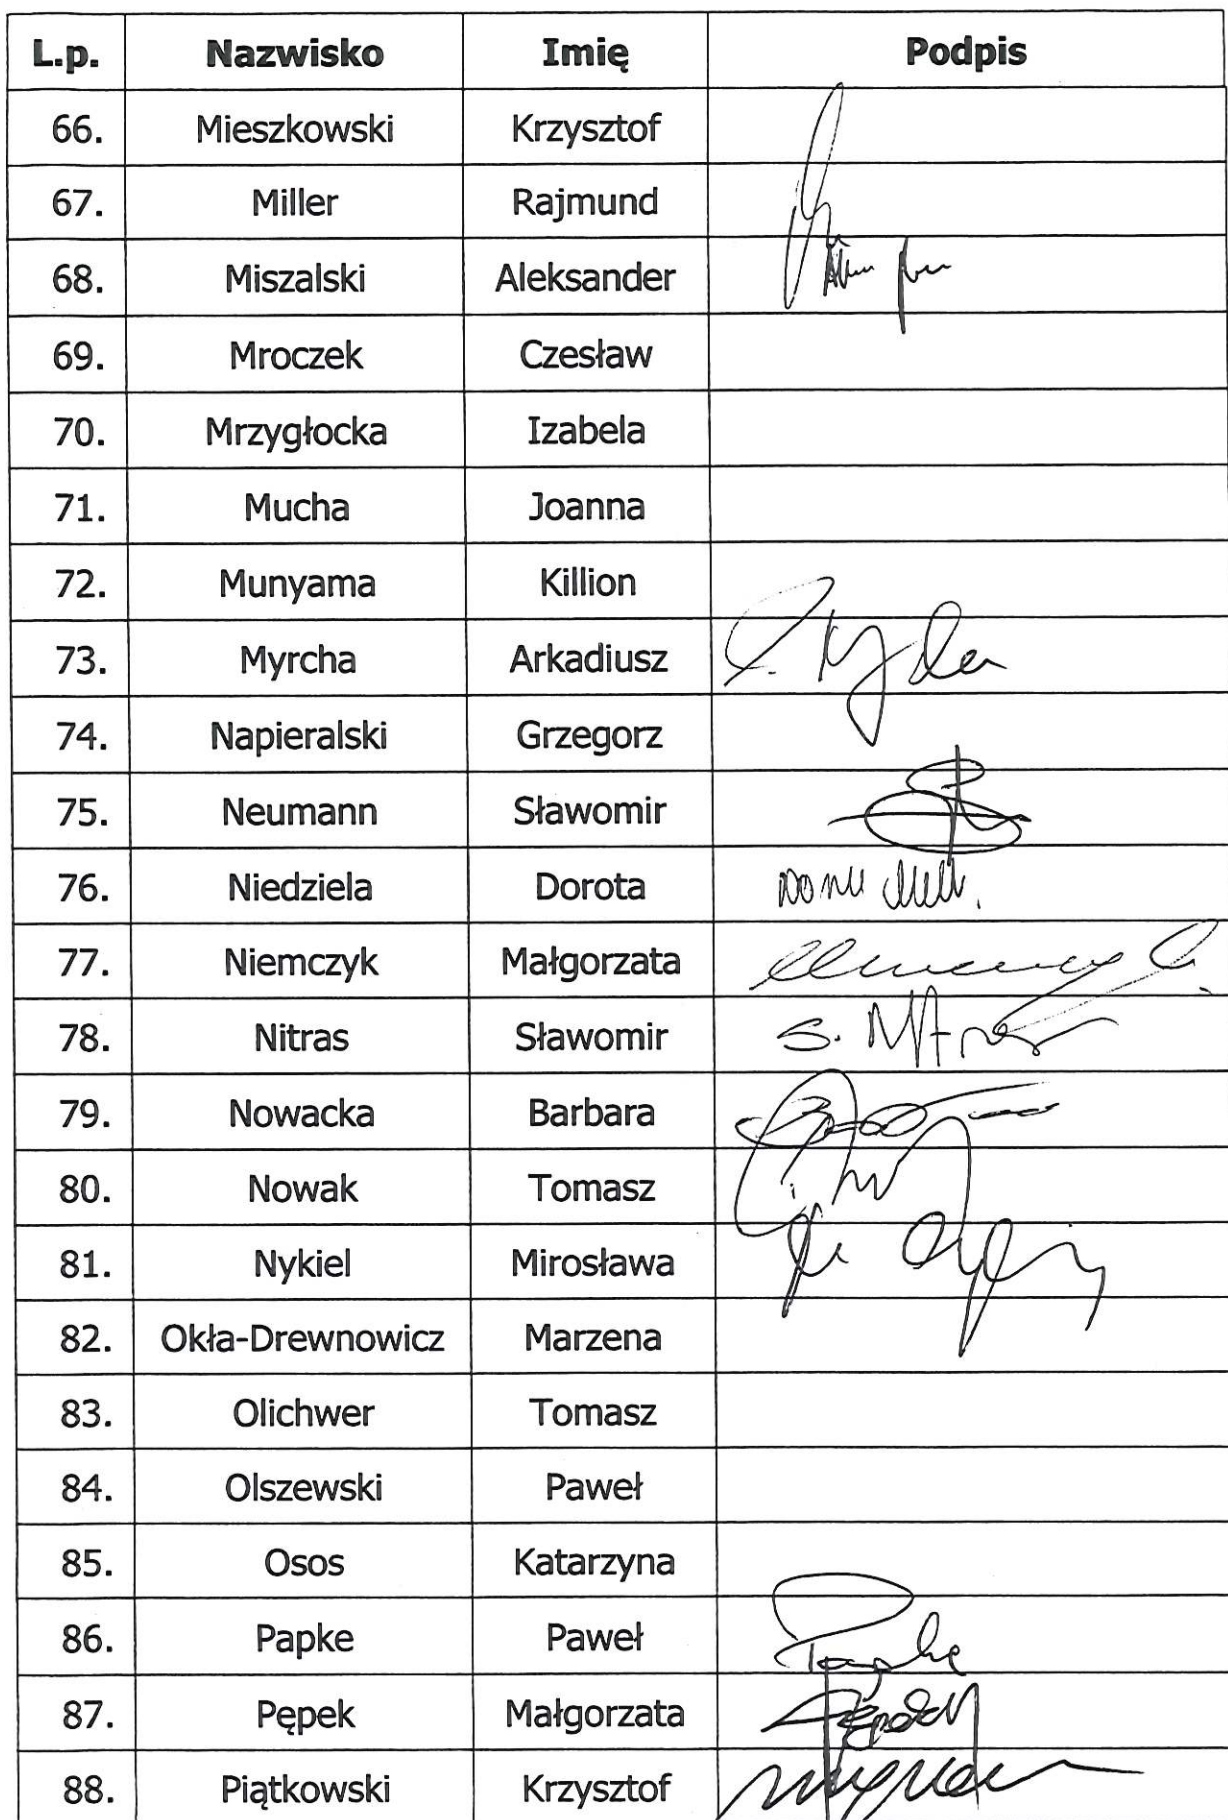 L.p. Nazwisko Imię Podpis
66. Mieszkowski Krzysztof
67. Miller Rajmund
68. Miszalski Aleksander
69. Mroczek Czesław
70. Mrzygłocka Izabela
71. Mucha Joanna
72. Munyama Killion
73. Myrcha Arkadiusz
74. Napieralski Grzegorz
75. Neumann Sławomir
76. Niedziela Dorota
77. Niemczyk Małgorzata
78. Nitras Sławomir S. Nitras
79. Nowacka Barbara
80. Nowak Tomasz
81. Nykiel Mirosława
82. Okła-Drewnowicz Marzena
83. Olichwer Tomasz
84. Olszewski Paweł
85. Osos Katarzyna
86. Papke Paweł Papke
87. Pępek Małgorzata
88. Piątkowski Krzysztof